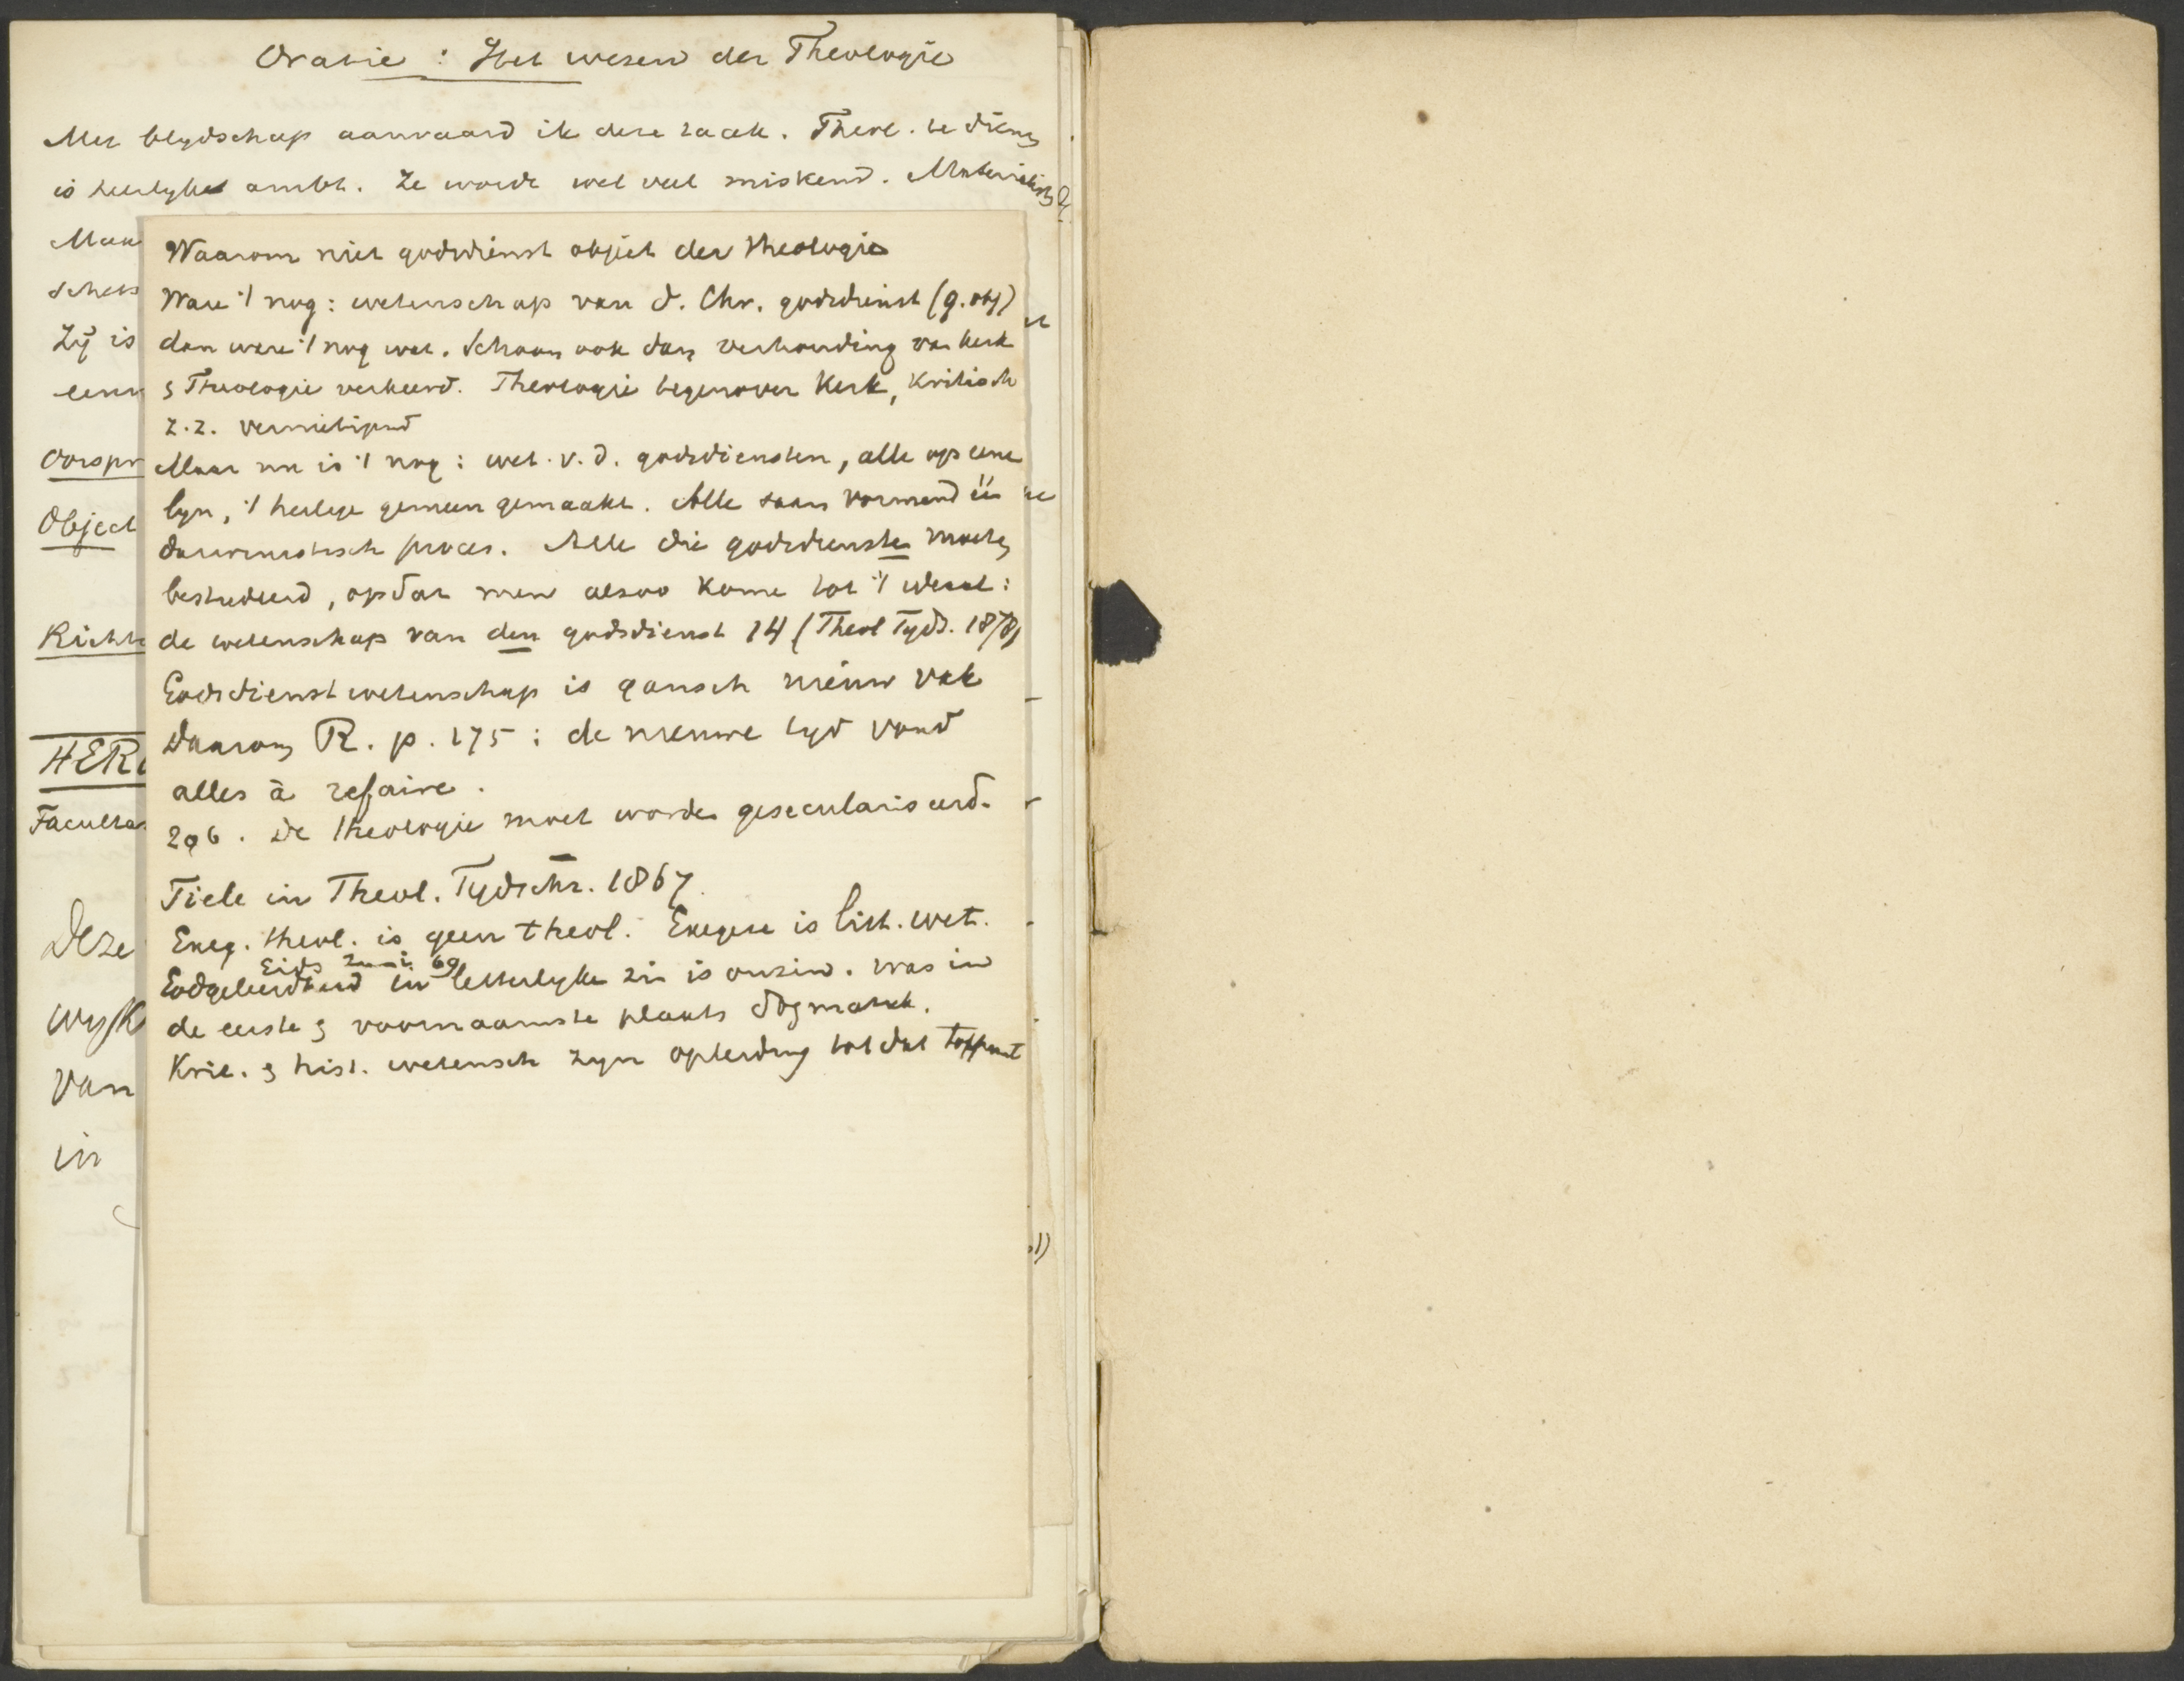 Oratie : Het wezen der Theologie
Met blydschap aanvaard ik deze taak. Theol. te dienen
is heerlyk ambt. Ze wordt wel veel miskend. Materialisten
Man
schets
Zij is
een
Oorspr
Object
Richt
HER
Faculta
Deze
wyk
Van
in
Waarom niet godsdienst object der theologie
Ware 't nog: wetenschap van d. Chr. godsdienst (g. obj)
dan ware 't nog wat. Schoon ook dan verhouding van kerk
& Theologie verkeerd. Theologie tegenover Kerk, kritisch
z.z. vernietigend
Maar nu is 't nog: wet. v. d. godsdiensten, alle op eene
lyn, 't heilige gemeen gemaakt. Alle saam vormend één
darwinistisch proces. Alle die godsdiensten moeten
bestudeerd, opdat men alzoo kome tot 't ideaal:
de wetenschap van den godsdienst 14 (Theol Tyds. 1878)
Godsdienstwetenschap is gansch nieuw vak
Daarom R. p. 175: de nieuwe tyd vond
alles à refaire.
206. De theologie moet worden geseculariseerd.
Tiele in Theol. Tydschr. 1867.
Exeg. theol. is geen theol. Exegese is lit. wet.
Gids Juni 69
Godgeleerdheid in letterlyke zin is onzin. Was in
de eerste & voornaamste plaats dogmatiek.
Krit. & hist. wetensch zyn opleiding tot dat toppunt